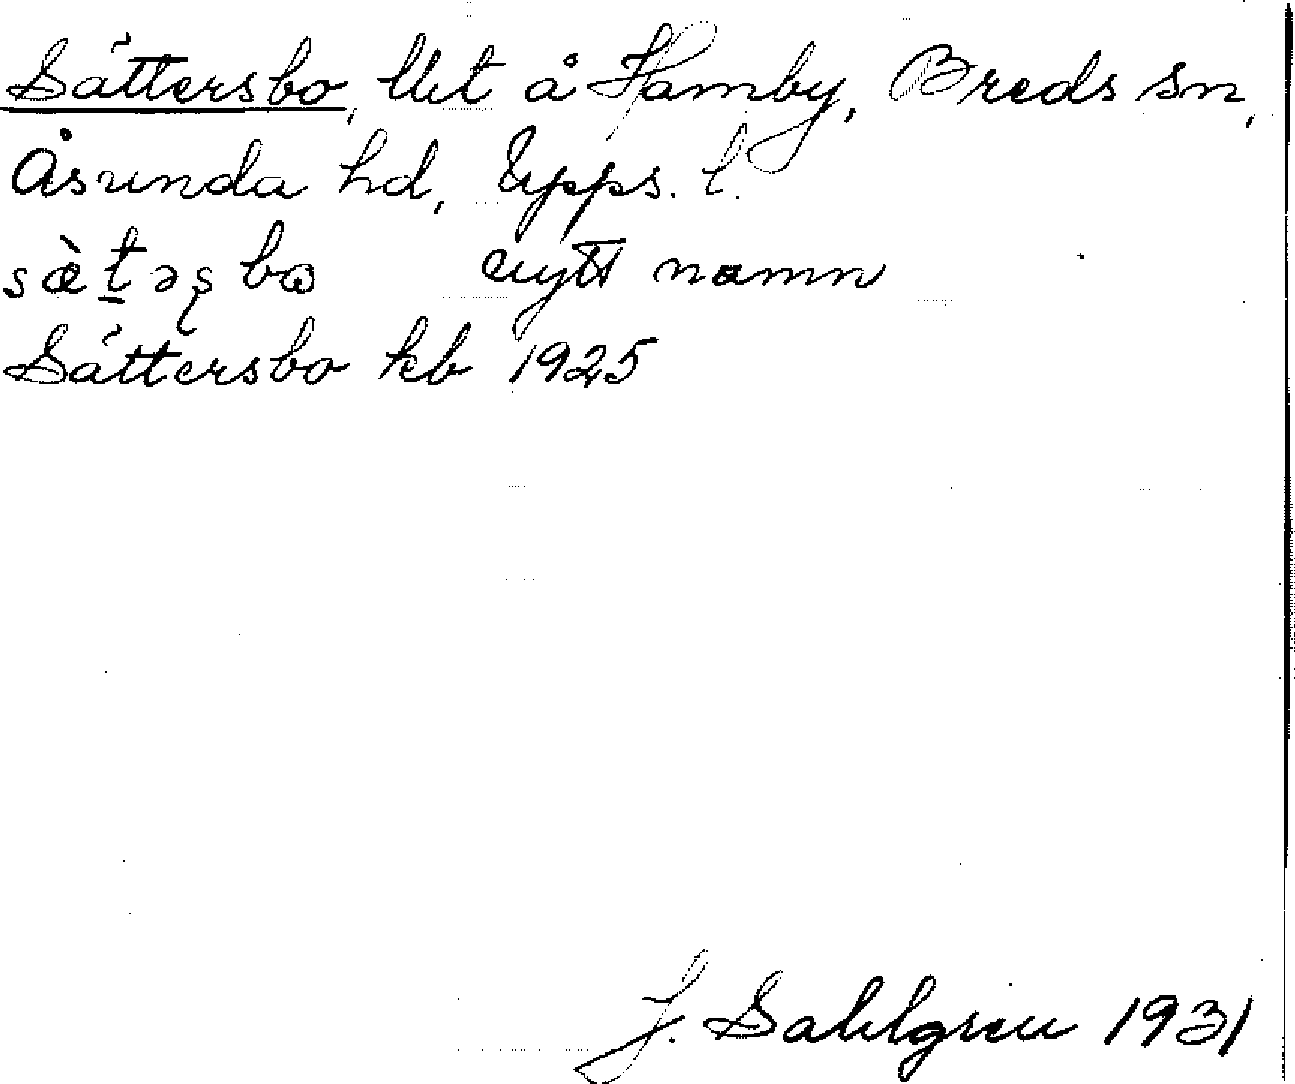 Sättersbo, lht å Hamby, Breds sn,
Åsunda hd, Upps. l.
sæ̀t̠əʂbɷ nytt namn
Sättersbo kb 1925
J. Sahlgren 1931